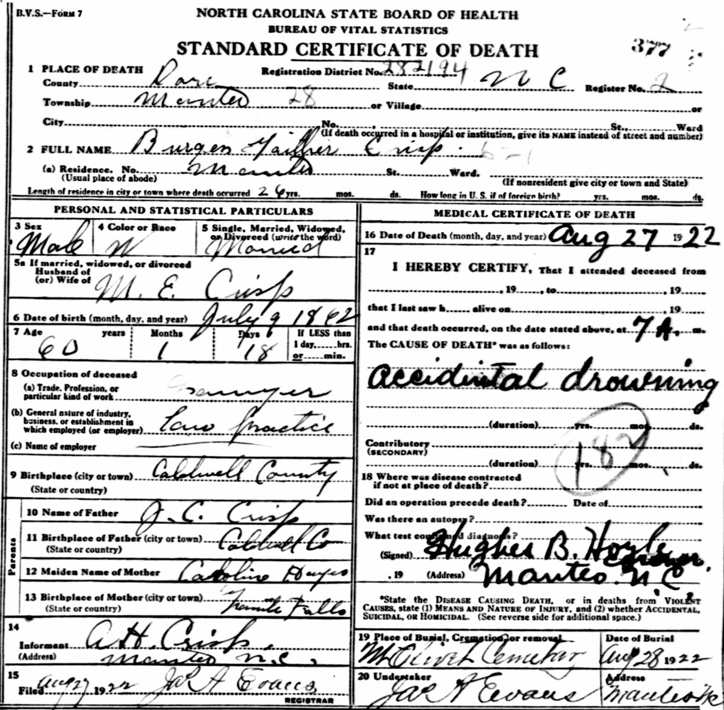 B.V.S.—FORM 7
NORTH CAROLINA STATE BOARD OF HEALTH
BUREAU OF VITAL STATISTICS
STANDARD CERTIFICATE OF DEATH
377
1 PLACE OF DEATH Registration District No. 282194
County Dare State N C Register No. 2
Township Manteo 28 or Village or
City No. St., Ward
(If death occurred in a hospital or institution, give its NAME instead of street and number)
2 FULL NAME Burgen Gaither Crisp
(a) Residence. No. Manteo St. Ward.
(Usual place of abode) (If nonresident give city or town and State)
Length of residence in city or town where death occurred 26 yrs. mos. ds. How long in U. S. if of foreign birth? yrs. mos. ds.
PERSONAL AND STATISTICAL PARTICULARS
3 Sex 4 Color or Race 5 Single, Married, Widowed, or Divorced (write the word)
Male W Married
5a If married, widowed, or divorced
Husband of
(or) Wife of M. E. Crisp
6 Date of birth (month, day, and year) July 9 1862
7 Age years Months Days If LESS than
60 1 18 1 day, hrs.
or min.
8 Occupation of deceased
(a) Trade, Profession, or
particular kind of work
(b) General nature of industry,
business, or establishment in
which employed (or employer) law practice
(c) Name of employer
9 Birthplace (city or town) Caldwell County
(State or country)
Parents
10 Name of Father J. C. Crisp
11 Birthplace of Father (city or town) Caldwell Co
(State or country)
12 Maiden Name of Mother Caroline Hayes
13 Birthplace of Mother (city or town)
(State or country) Granite Falls
14
Informant A H. Crisp
(Address) Manteo N.C.
15
Filed Aug 27 1922 Jas A Evans
REGISTRAR
MEDICAL CERTIFICATE OF DEATH
16 Date of Death (month, day, and year) Aug 27 1922
17
I HEREBY CERTIFY, That I attended deceased from
, 19 , to , 19
that I last saw h alive on , 19
and that death occurred, on the date stated above, at 7 A. m.
The CAUSE OF DEATH* was as follows:
accidintal drowning
(duration) yrs. mos. ds.
182
Contributory
(SECONDARY)
(duration) yrs. mos. ds.
18 Where was disease contracted
if not at place of death?
Did an operation precede death? Date of
Was there an autopsy?
What test confirmed diagnosis?
(Signed) Hughes B. Hoyle
Coroner.
, 19 (Address) Manteo N. C
*State the DISEASE CAUSING DEATH, or in deaths from VIOLENT
CAUSES, state (1) MEANS AND NATURE OF INJURY, and (2) whether ACCIDENTAL,
SUICIDAL, OR HOMICIDAL. (See reverse side for additional space.)
19 Place of Burial, Cremation or removal Date of Burial
Mt Olivet Cemetary Aug 28 1922
20 Undertaker Address
Jas A Evans Manteo NC